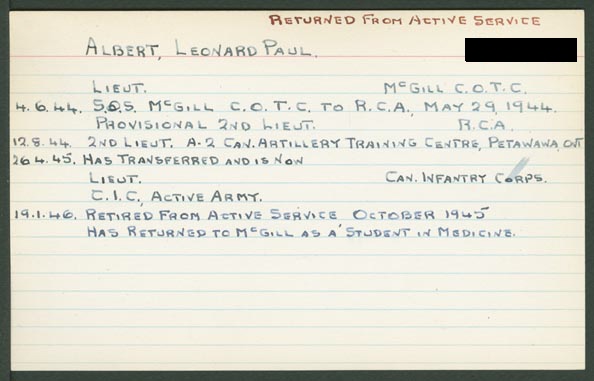 RETURNED FROM ACTIVE SERVICE
ALBERT, LEONARD PAUL.
LIEUT. McGILL C.O.T.C.
4.6.44. S.O.S. McGILL C.O.T.C. TO R.C.A., MAY 29, 1944.
PROVISIONAL 2ND LIEUT. R.C.A.
12.8.44. 2ND LIEUT. A-2 CAN. ARTILLERY TRAINING CENTRE, PETAWAWA, ONT
26.4.45. HAS TRANSFERRED AND IS NOW
LIEUT. CAN. INFANTRY CORPS.
C.I.C., ACTIVE ARMY.
19.1.46. RETIRED FROM ACTIVE SERVICE OCTOBER 1945
HAS RETURNED TO McGILL AS A STUDENT IN MEDICINE.